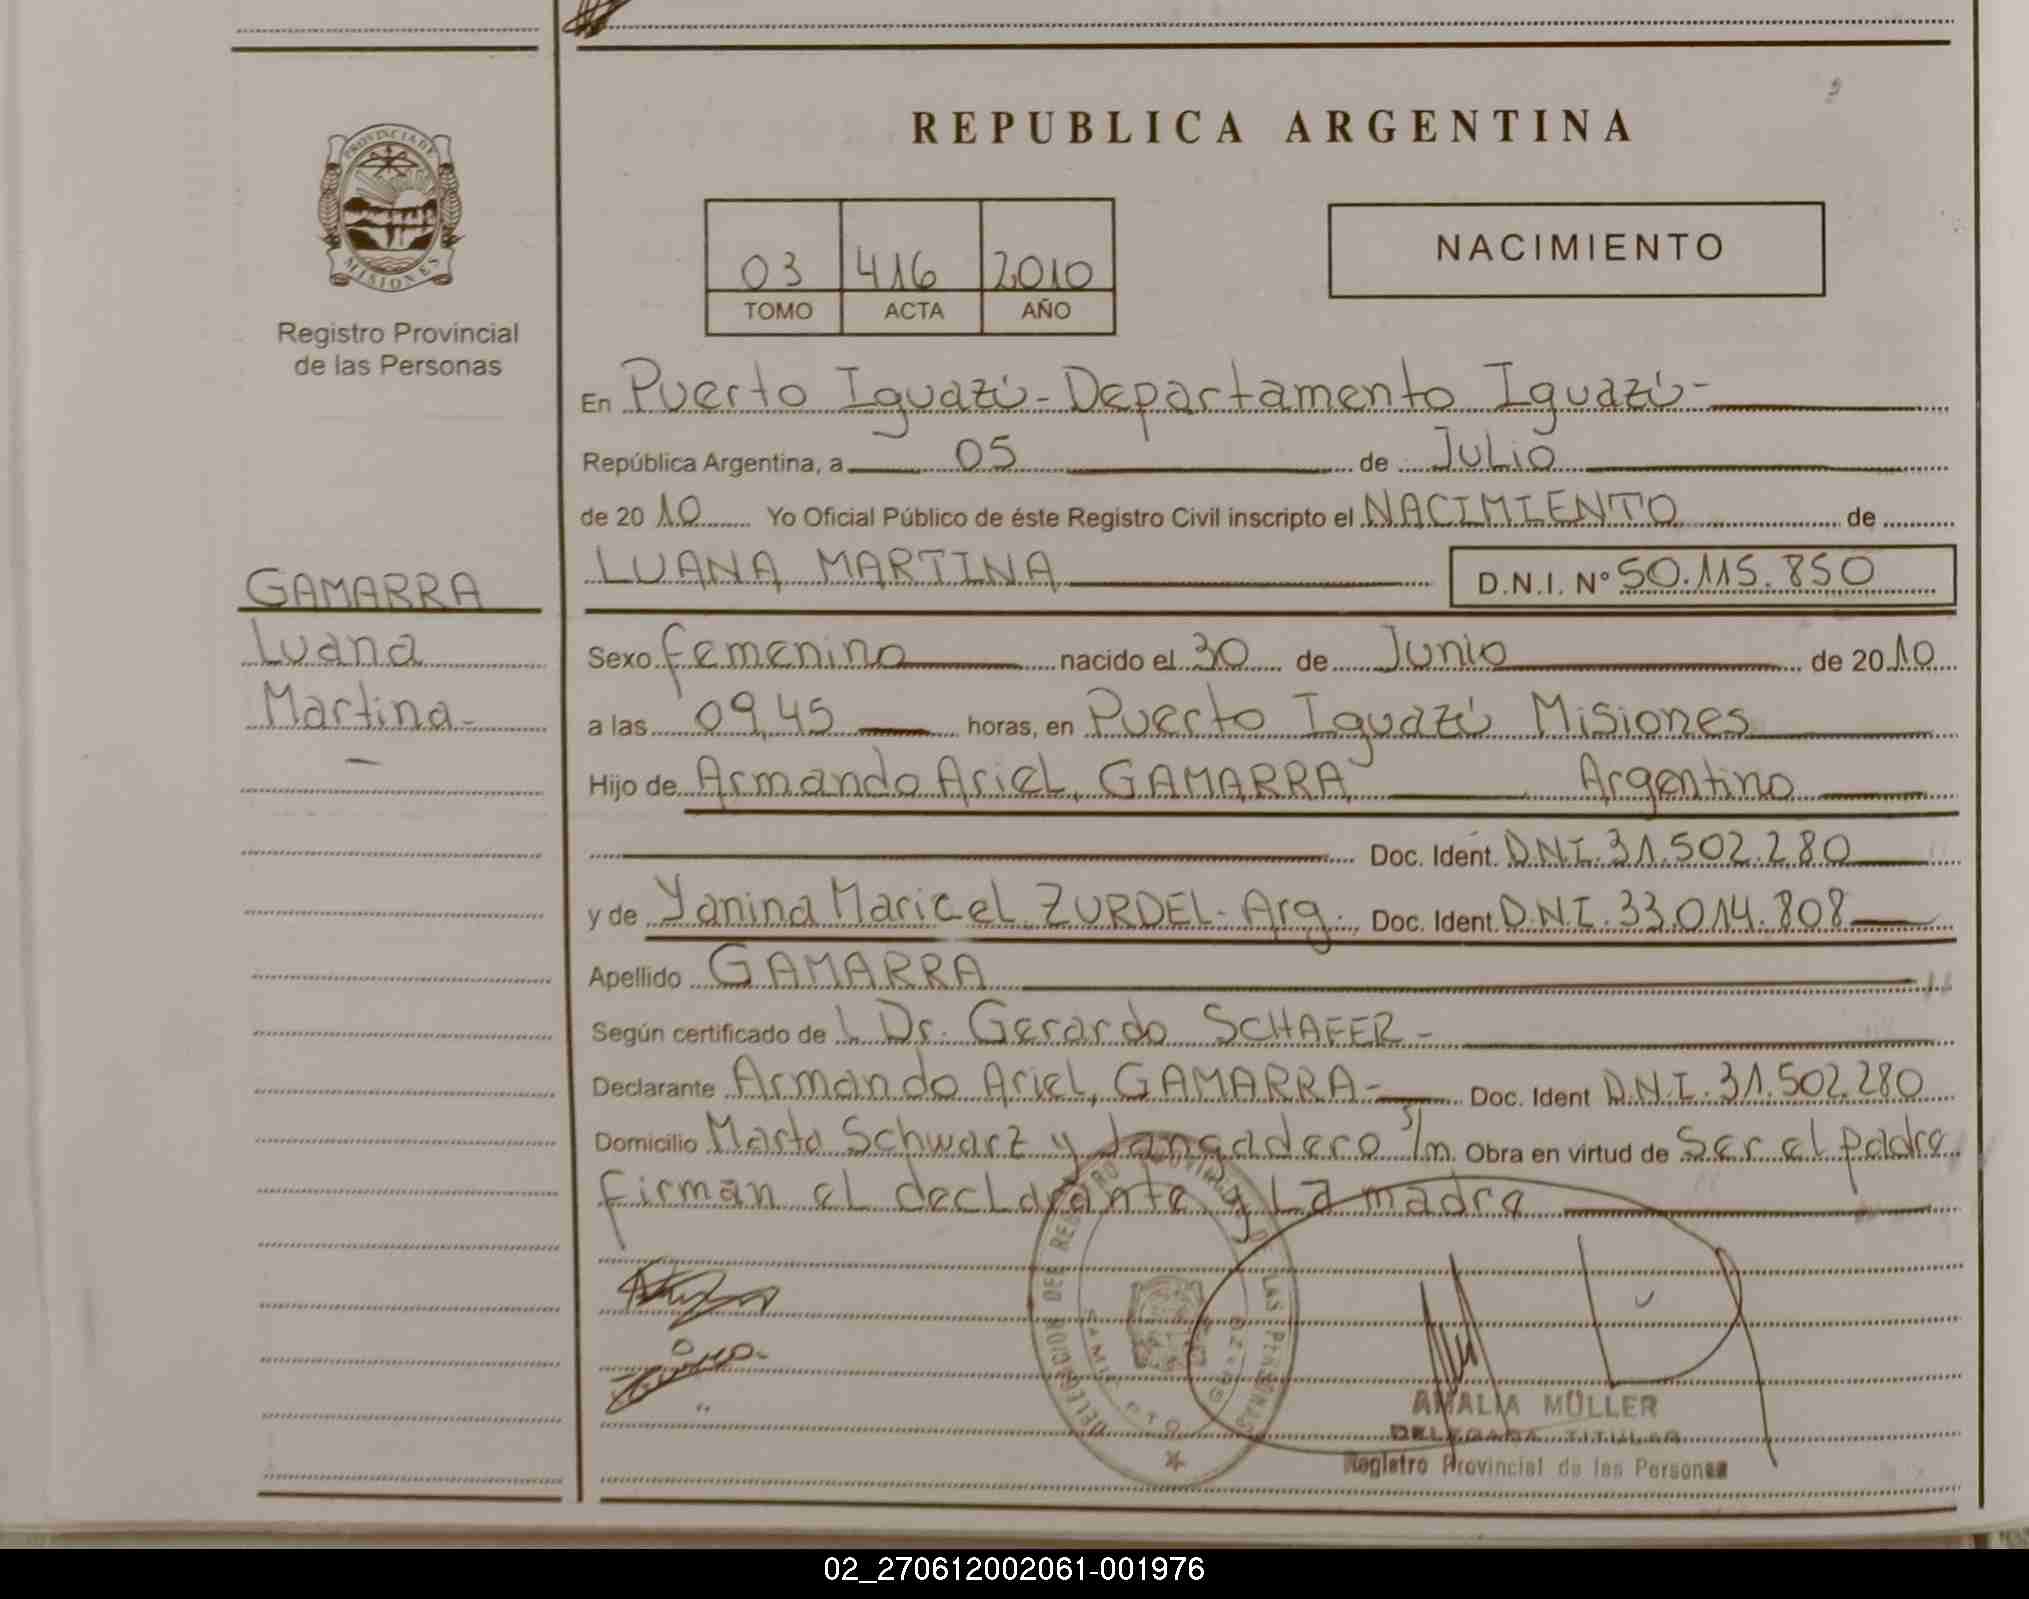 REPUBLICA ARGENTINA
PROVINCIA DE
MISIONES
Registro Provincial
de las Personas
03 416 2010
TOMO ACTA AÑO
NACIMIENTO
En Puerto Iguazú - Departamento Iguazú -
República Argentina, a 05 de Julio
de 20 10 Yo Oficial Público de éste Registro Civil inscripto el NACIMIENTO de
LUANA MARTINA D.N.I. N° 50.115.850
GAMARRA
Luana
Martina -
Sexo femenino nacido el 30 de Junio de 20 10
a las 09,45 horas, en Puerto Iguazú Misiones
Hijo de Armando Ariel, GAMARRA Argentino
Doc. Ident. D.N.I. 31.502.280
y de Yanina Maricel ZURDEL - Arg. Doc. Ident. D.N.I. 33.014.808
Apellido GAMARRA
Según certificado de Dr. Gerardo SCHAFER -
Declarante Armando Ariel, GAMARRA - Doc. Ident D.N.I. 31.502.280
Domicilio Marta Schwarz y Jangadero s/n Obra en virtud de Ser el padre
firman el declarante y La madre
AMALIA MÜLLER
DELEGADA TITULAR
Registro Provincial de las Personas
02_270612002061-001976